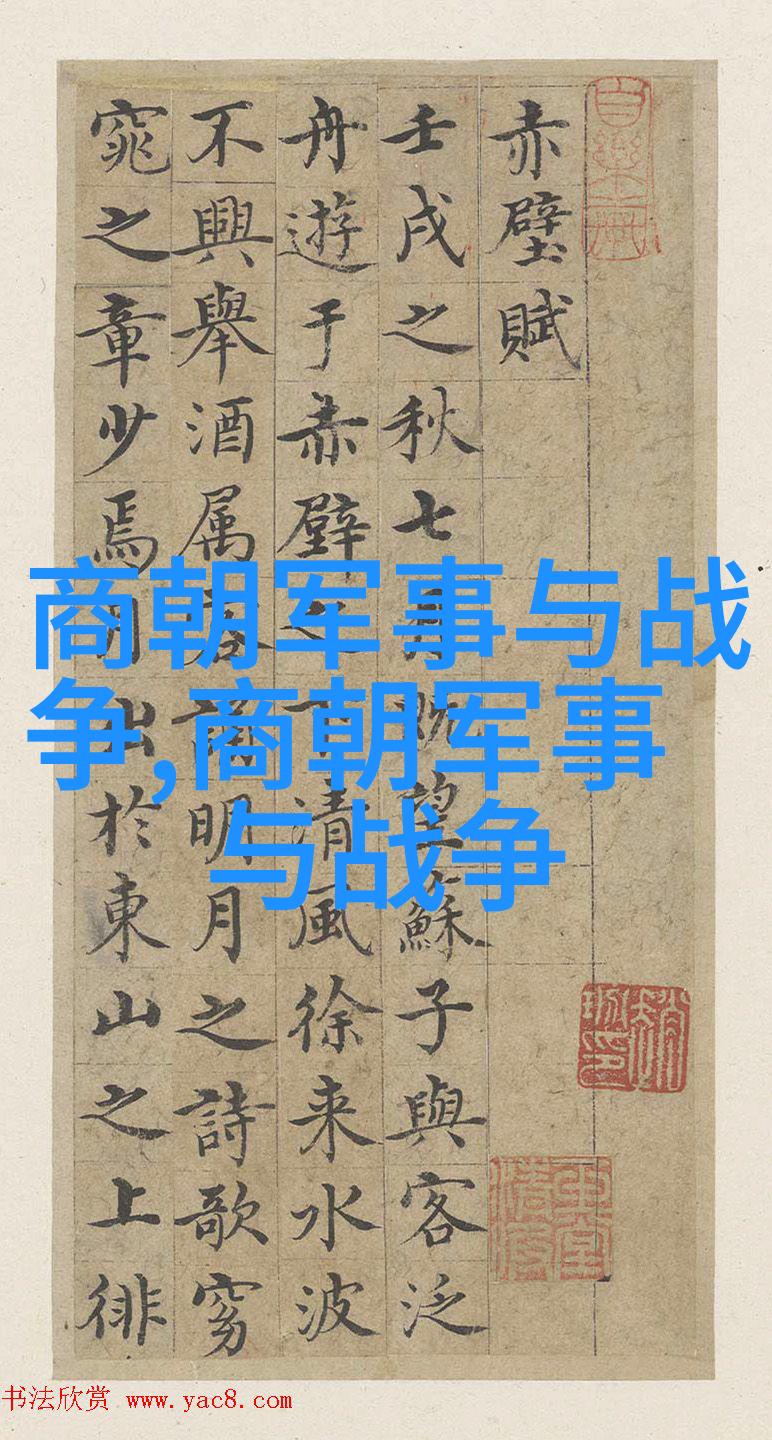 赤壁賦
壬戌之秋七月既望蘇子與客泛
舟遊于赤壁之下清風徐来水波
不興舉酒属客誦明月之詩歌窈
窕之章少焉月出於東山之上徘
商朝军事与战
争,商朝军事
与战争
书法欣赏 www.yac8.com